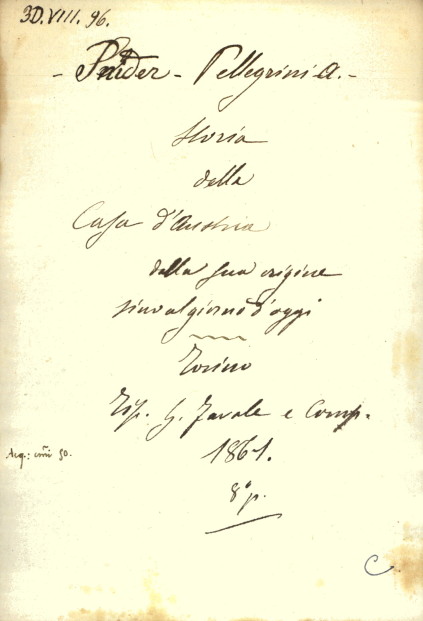 3D.VIII.96.
- Snider - Pellegrini A. -
Storia
della
Casa d'Austria
dalla sua origine
sino al giorno d'oggi
Torino
Tip. G. Favale e Comp.
1861.
Acq.: 50.
8° p.
C